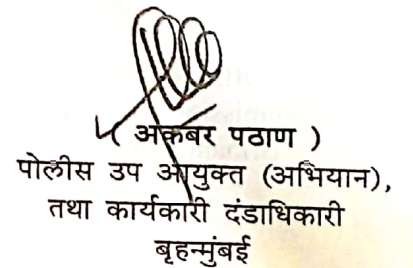 ( अकबर पठाण )
पोलीस उप आयुक्त (अभियान),
तथा कार्यकारी दंडाधिकारी
बृहन्मुंबई